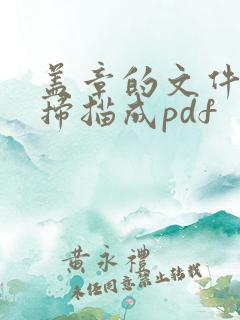 盖章的文件
扫描成pdf
黄永礼
未经同意禁止转载